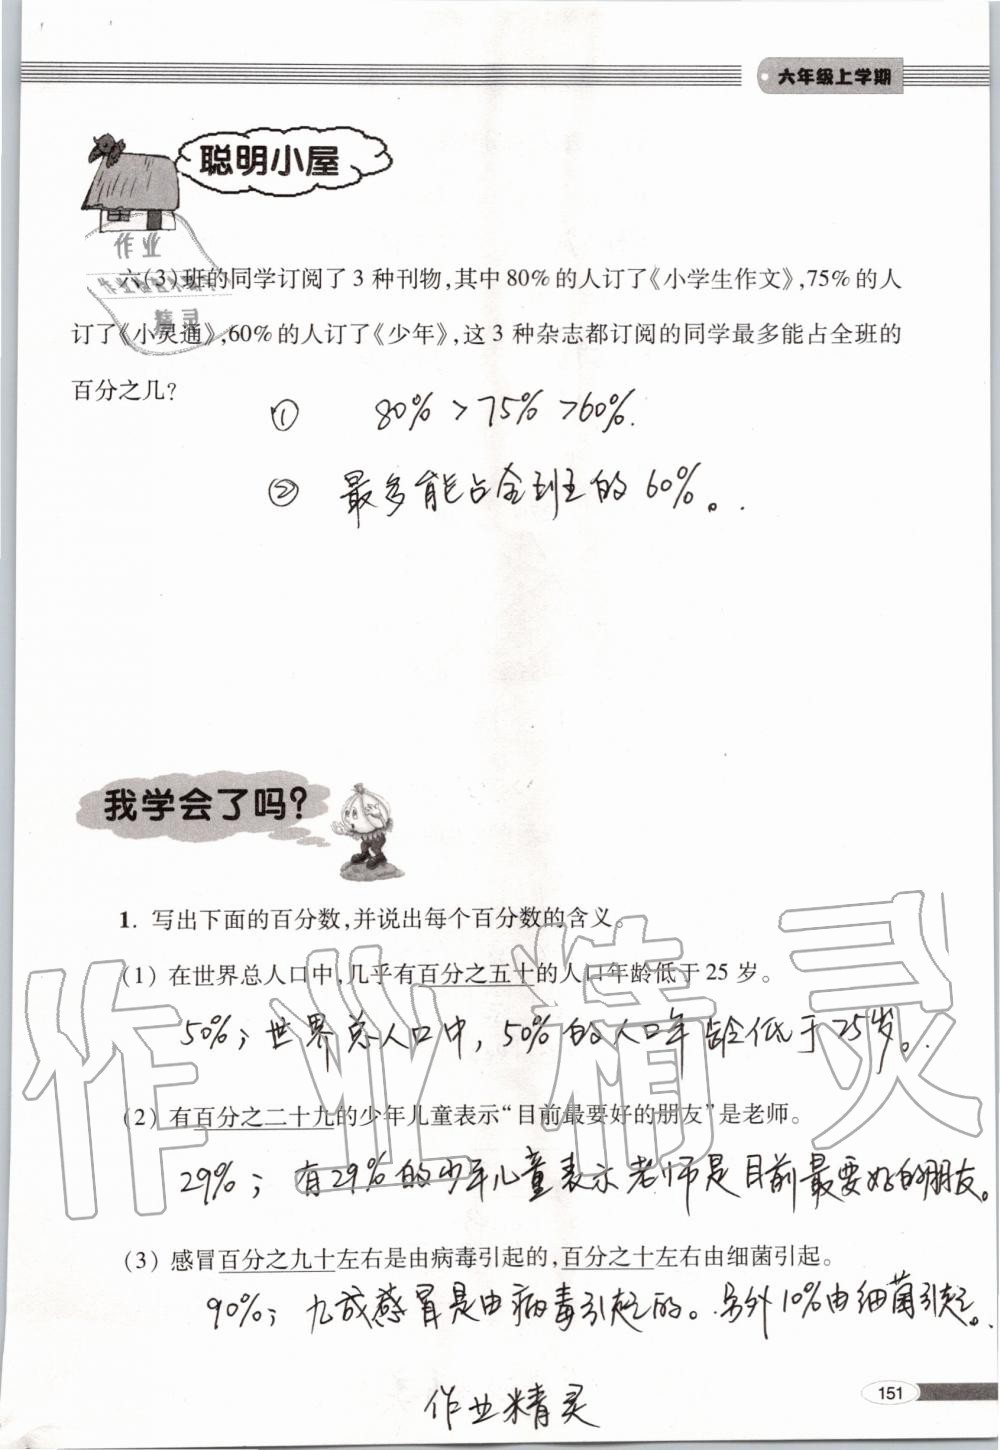 六年级上学期
聪明小屋
作业
精灵
六(3)班的同学订阅了3种刊物,其中80%的人订了《小学生作文》,75%的人
订了《小灵通》,60%的人订了《少年》,这3种杂志都订阅的同学最多能占全班的
百分之几?
① 80%>75%>60%.
② 最多能占全班的60%。
我学会了吗?
1. 写出下面的百分数,并说出每个百分数的含义。
(1) 在世界总人口中,几乎有百分之五十的人口年龄低于25岁。
50%;世界总人口中,50%的人口年龄低于25岁。
(2) 有百分之二十九的少年儿童表示“目前最要好的朋友”是老师。
29%;有29%的少年儿童表示老师是目前最要好的朋友。
(3) 感冒百分之九十左右是由病毒引起的,百分之十左右由细菌引起。
90%;九成感冒是由病毒引起的。另外10%由细菌引起。
作业精灵
作业精灵
151